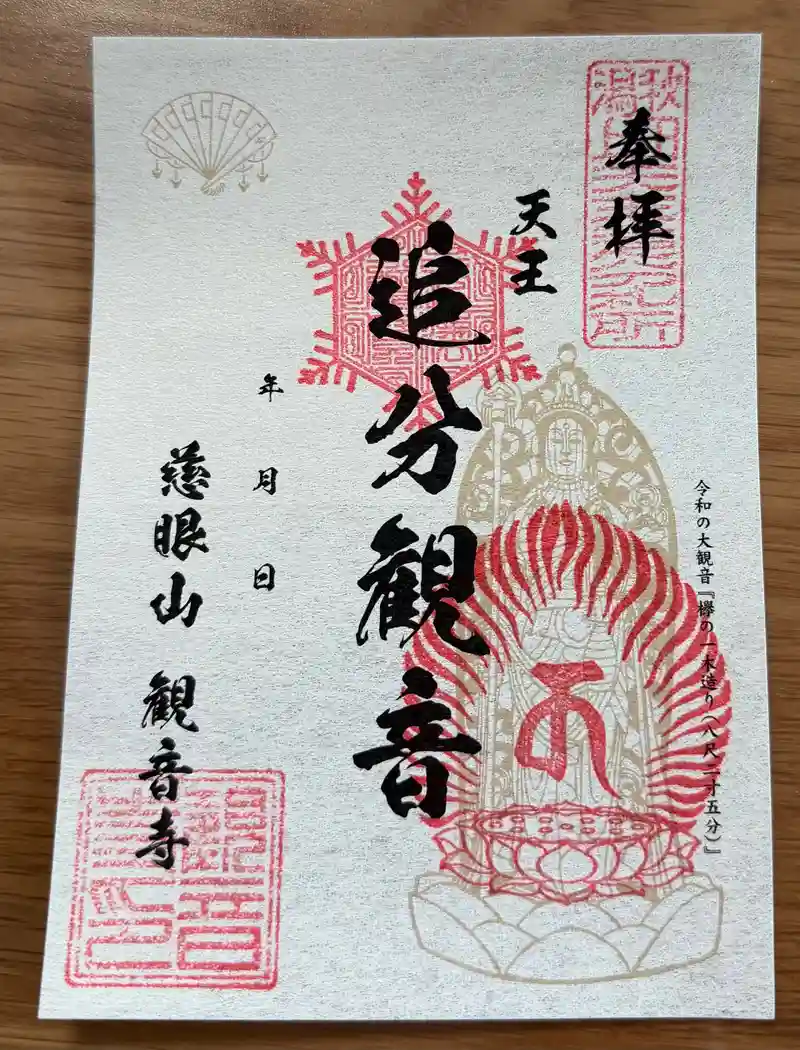 奉拝
天王
追分観音
令和の大観音『欅の一木造り(八尺二寸五分)』
年 月 日
慈眼山 観音寺